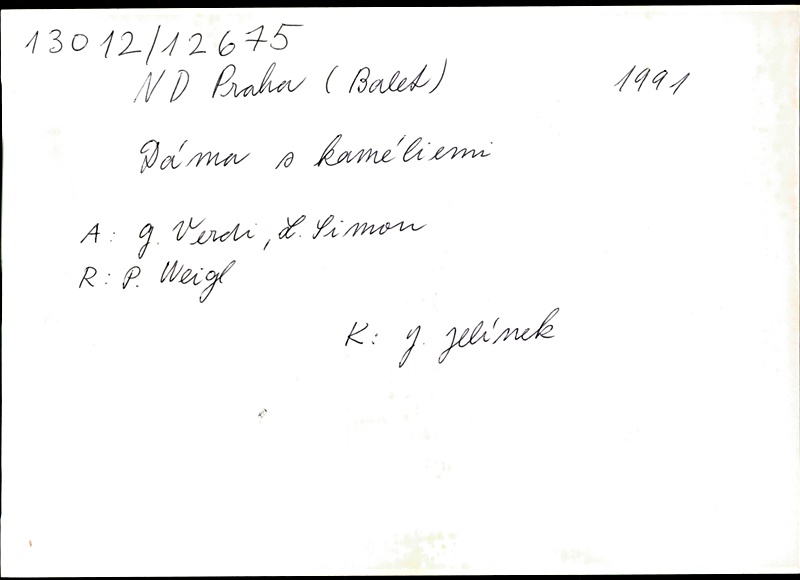 13012/12675
ND Praha (Balet) 1991
Dáma s kaméliemi
A: G. Verdi, L. Simon
R: P. Weigl
K: J. Jelínek